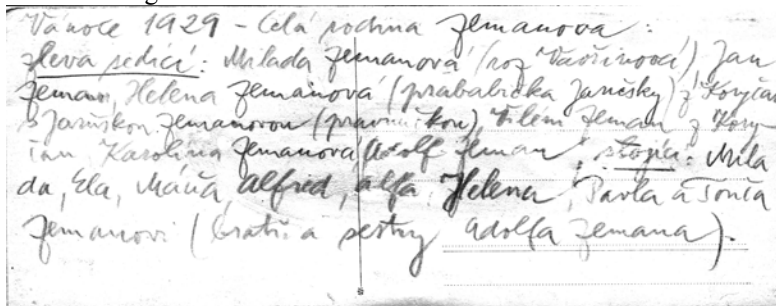 Vánoce 1929 - Celá rodina Zemanova:
zleva sedící: Milada Zemanová (roz. Vavřinová) Jan
Zeman, Helena Zemanová (prababička Jarušky) z Koryčan
s Jaruškou Zemanovou (pravnučkou), Vilém Zeman z Kory
čan, Karolina Zemanová, Adolf Zeman, stojící: Mila
da, Ela, Máňa, Alfred, Alfa, Helena, Pavla a Tonča
Zemanovi (bratři a sestry Adolfa Zemana).